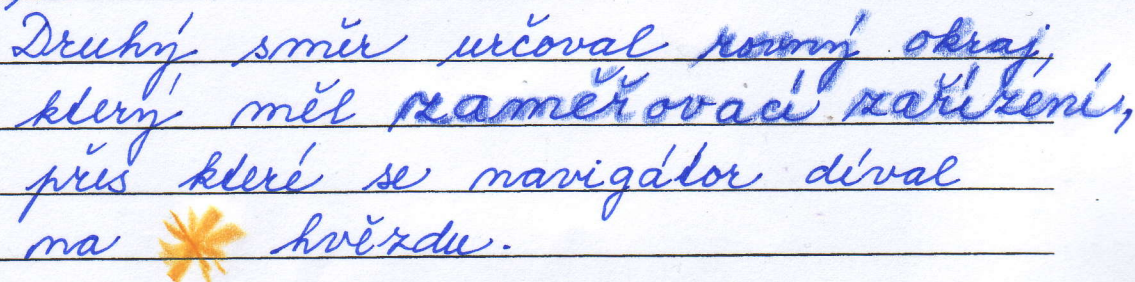 Druhý směr určoval rovný okraj,
který měl zaměřovací zařízení,
přes které se navigátor díval
na hvězdu.